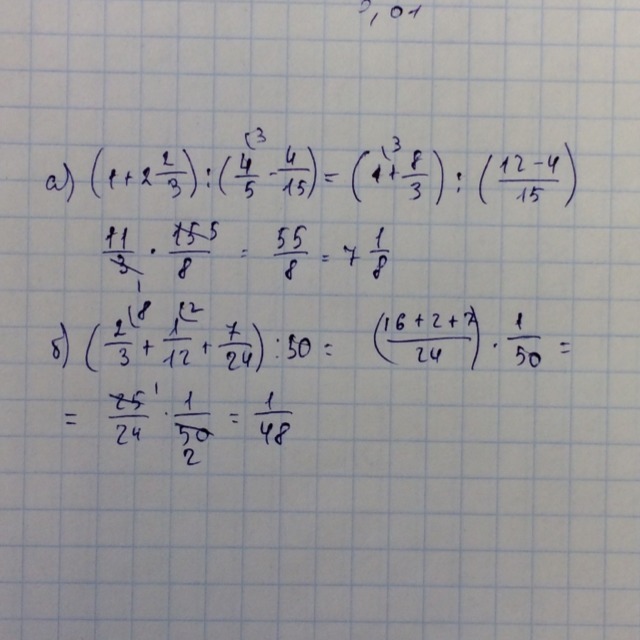 , 01
а) (1+2 2/3) : (4/5 - 4/15) = (1 + 8/3) : ((12-4)/15)
11/3 · 15/8 = 55/8 = 7 1/8
б) (2/3 + 1/12 + 7/24) : 50 = ((16+2+7)/24) · 1/50 =
= 25/24 · 1/50 = 1/48